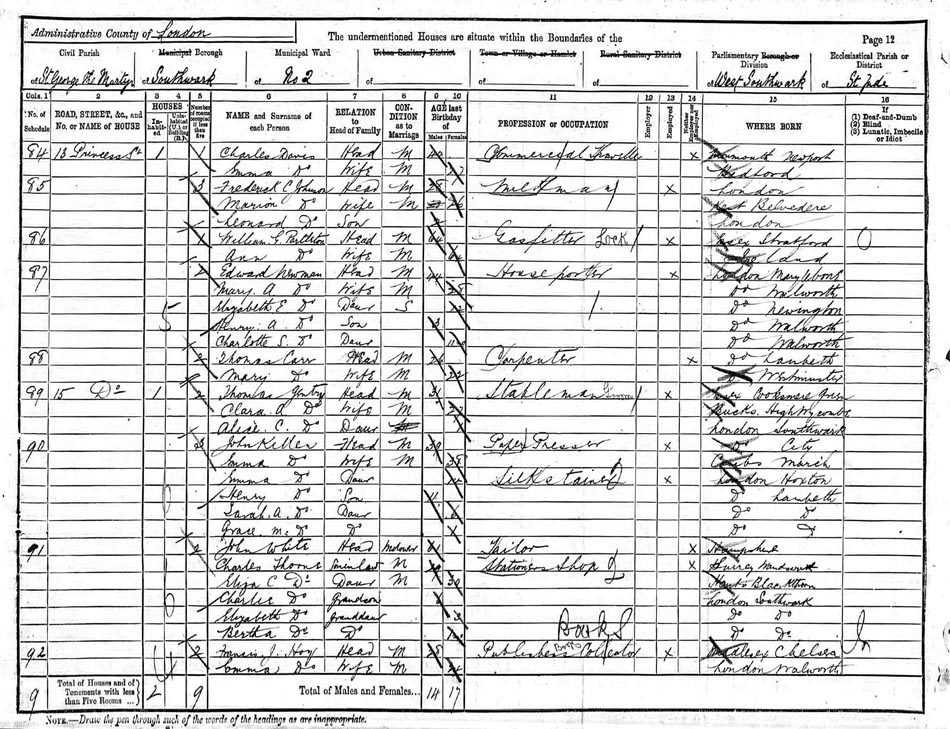 Administrative County of London
The undermentioned Houses are situate within the Boundaries of the
Page 12
Civil Parish Municipal Borough Municipal Ward Urban Sanitary District Town or Village or Hamlet Rural Sanitary District Parliamentary Borough or Division Ecclesiastical Parish or District
of St George the Martyr of Southwark of No 2 of of of of West Southwark of St Jude
Cols. 1 2 3 4 5 6 7 8 9 10 11 12 13 14 15 16
No. of Schedule ROAD, STREET, &c., and No. or NAME of HOUSE HOUSES Inhabited Uninhabited (U.) or Building (B.) Number of rooms occupied if less than five NAME and Surname of each Person RELATION to Head of Family CONDITION as to Marriage AGE last Birthday of Males Females PROFESSION or OCCUPATION Employer Employed Neither WHERE BORN (1) Deaf-and-Dumb (2) Blind (3) Lunatic, Imbecile or Idiot
84 13 Princess St 1 1 Charles Davis Head M Commercial Traveller x Monmouth Newport
Emma Do Wife M Bedford
85 3 Frederick C Johnson Head M Milkman x London
Marion Do Wife M Kent Belvedere
Leonard Do Son London
86 William G Head M Gasfitter Lock x Essex Stratford
Ann Do Wife M
87 Edward Newman Head M House porter x London Marylebone
Mary A Do Wife M Do Walworth
Elizabeth E Do Daur S Do Newington
Henry A Do Son Do Walworth
Charlotte S. Do Daur Do Walworth
88 2 Thomas Carr Head M Carpenter x Do Lambeth
Mary Do Wife M Do Westminster
89 15 Do 1 2 Thomas Gentry Head M Stableman Groom x Essex Green
Clara A Do Wife M Bucks. High Wycombe
Alice C. Do Daur London Southwark
90 3 John Killer Head M 39 Paper Presser x Do City
Emma Do Wife M 38 Cambs March
Emma Do Daur Silk stainer x London Hoxton
Henry Do Son 11 Do Lambeth
Sarah A. Do Daur Do Do
Grace M. Do Do Do Do
91 2 John White Head Widower Tailor x Hampshire
Charles Thorne Son in Law M Stationers Shop x Surrey
Eliza C Do Daur M 30 Hants
Charlie Do Grandson London Southwark
Elizabeth Do Granddaur Do Do
Bertha Do Do Do Do
Books
92 2 Francis J. Hoy Head M Publishers Books Collector x Middlesex Chelsea
Emma Do Wife M London Walworth
9 Total of Houses and of Tenements with less than Five Rooms ... 2 9 Total of Males and Females... 14 17
NOTE.—Draw the pen through such of the words of the headings as are inappropriate.